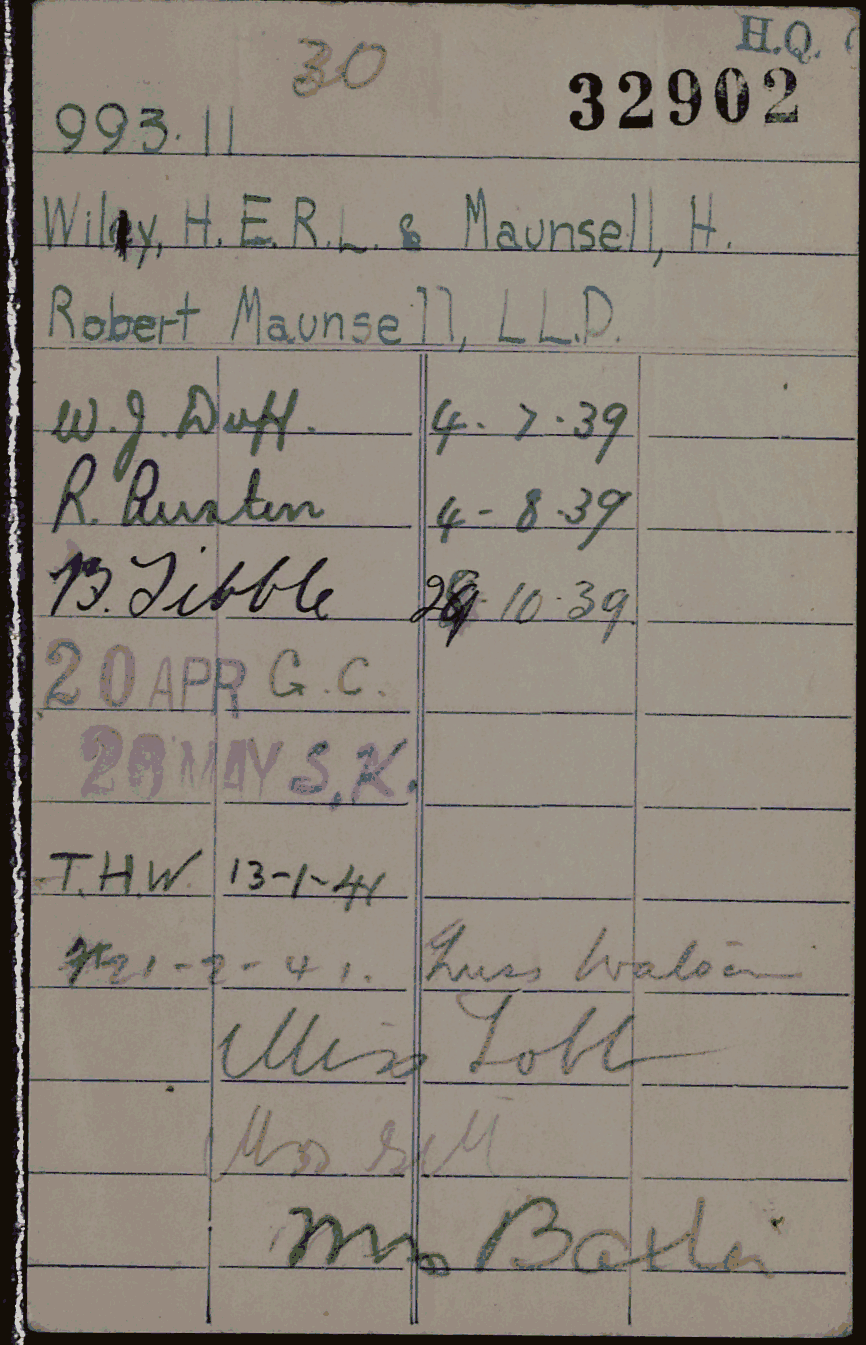 H.Q.
30
32902
993.11
Wily, H.E.R.L. & Maunsell, H.
Robert Maunsell, LL.D.
W.J. Duff. 4-7-39
R. Austin 4-8-39
B. Tibble 10-39
20 APR G.C.
28 MAY S.K.
T.H.W 13-1-41
21-2-41. Miss
Miss Lobb
Mrs
Mrs Baxter